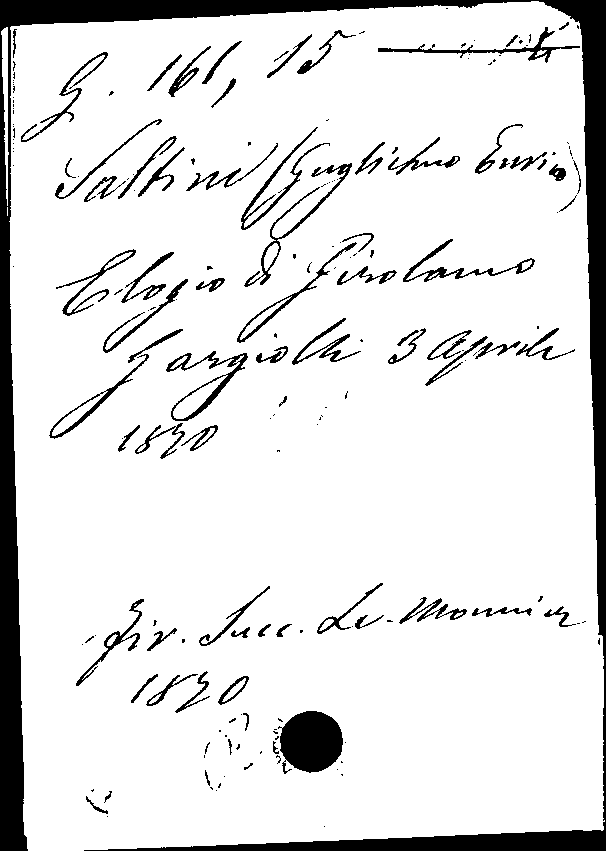 G. 161, 15
Saltini (Guglielmo Enrico)
Elogio di Girolamo
Gargiolli 3 Aprile
1870
Fir. Succ. Le Monnier
1870